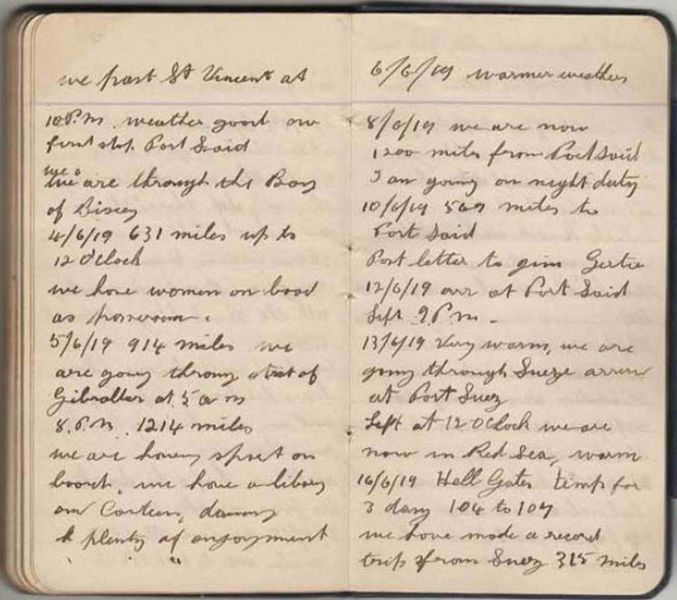 we past St Vincent at
10 P.m. weather good our
first stop Port Siaid
we
we are through the Bay
of Biscy
4/6/19 631 miles up to
12 O'Clock
we have women on boad
as
5/6/19 914 miles we
are going throug strat of
Gibralter at 5 a m
8. P.m. 1214 miles
we are having sport on
board, we have a libary
and
& plenty of enjoyment
6/6/19 warmer weather
8/6/19 we are now
1200 miles from Port Said
I am going on night duty
10/6/19 569 miles to
Port Said
Post letter to Gertie
12/6/19 arr at Port Said
Left 9 P.m.
13/6/19 Very warm, we are
going through Sueze
at Port Suez
Left at 12 O Clock we are
now in Red Sea, warm
16/6/19 Hell Gates temp for
3 days 104 to 107
we have made a record
trip from Suez 315 miles